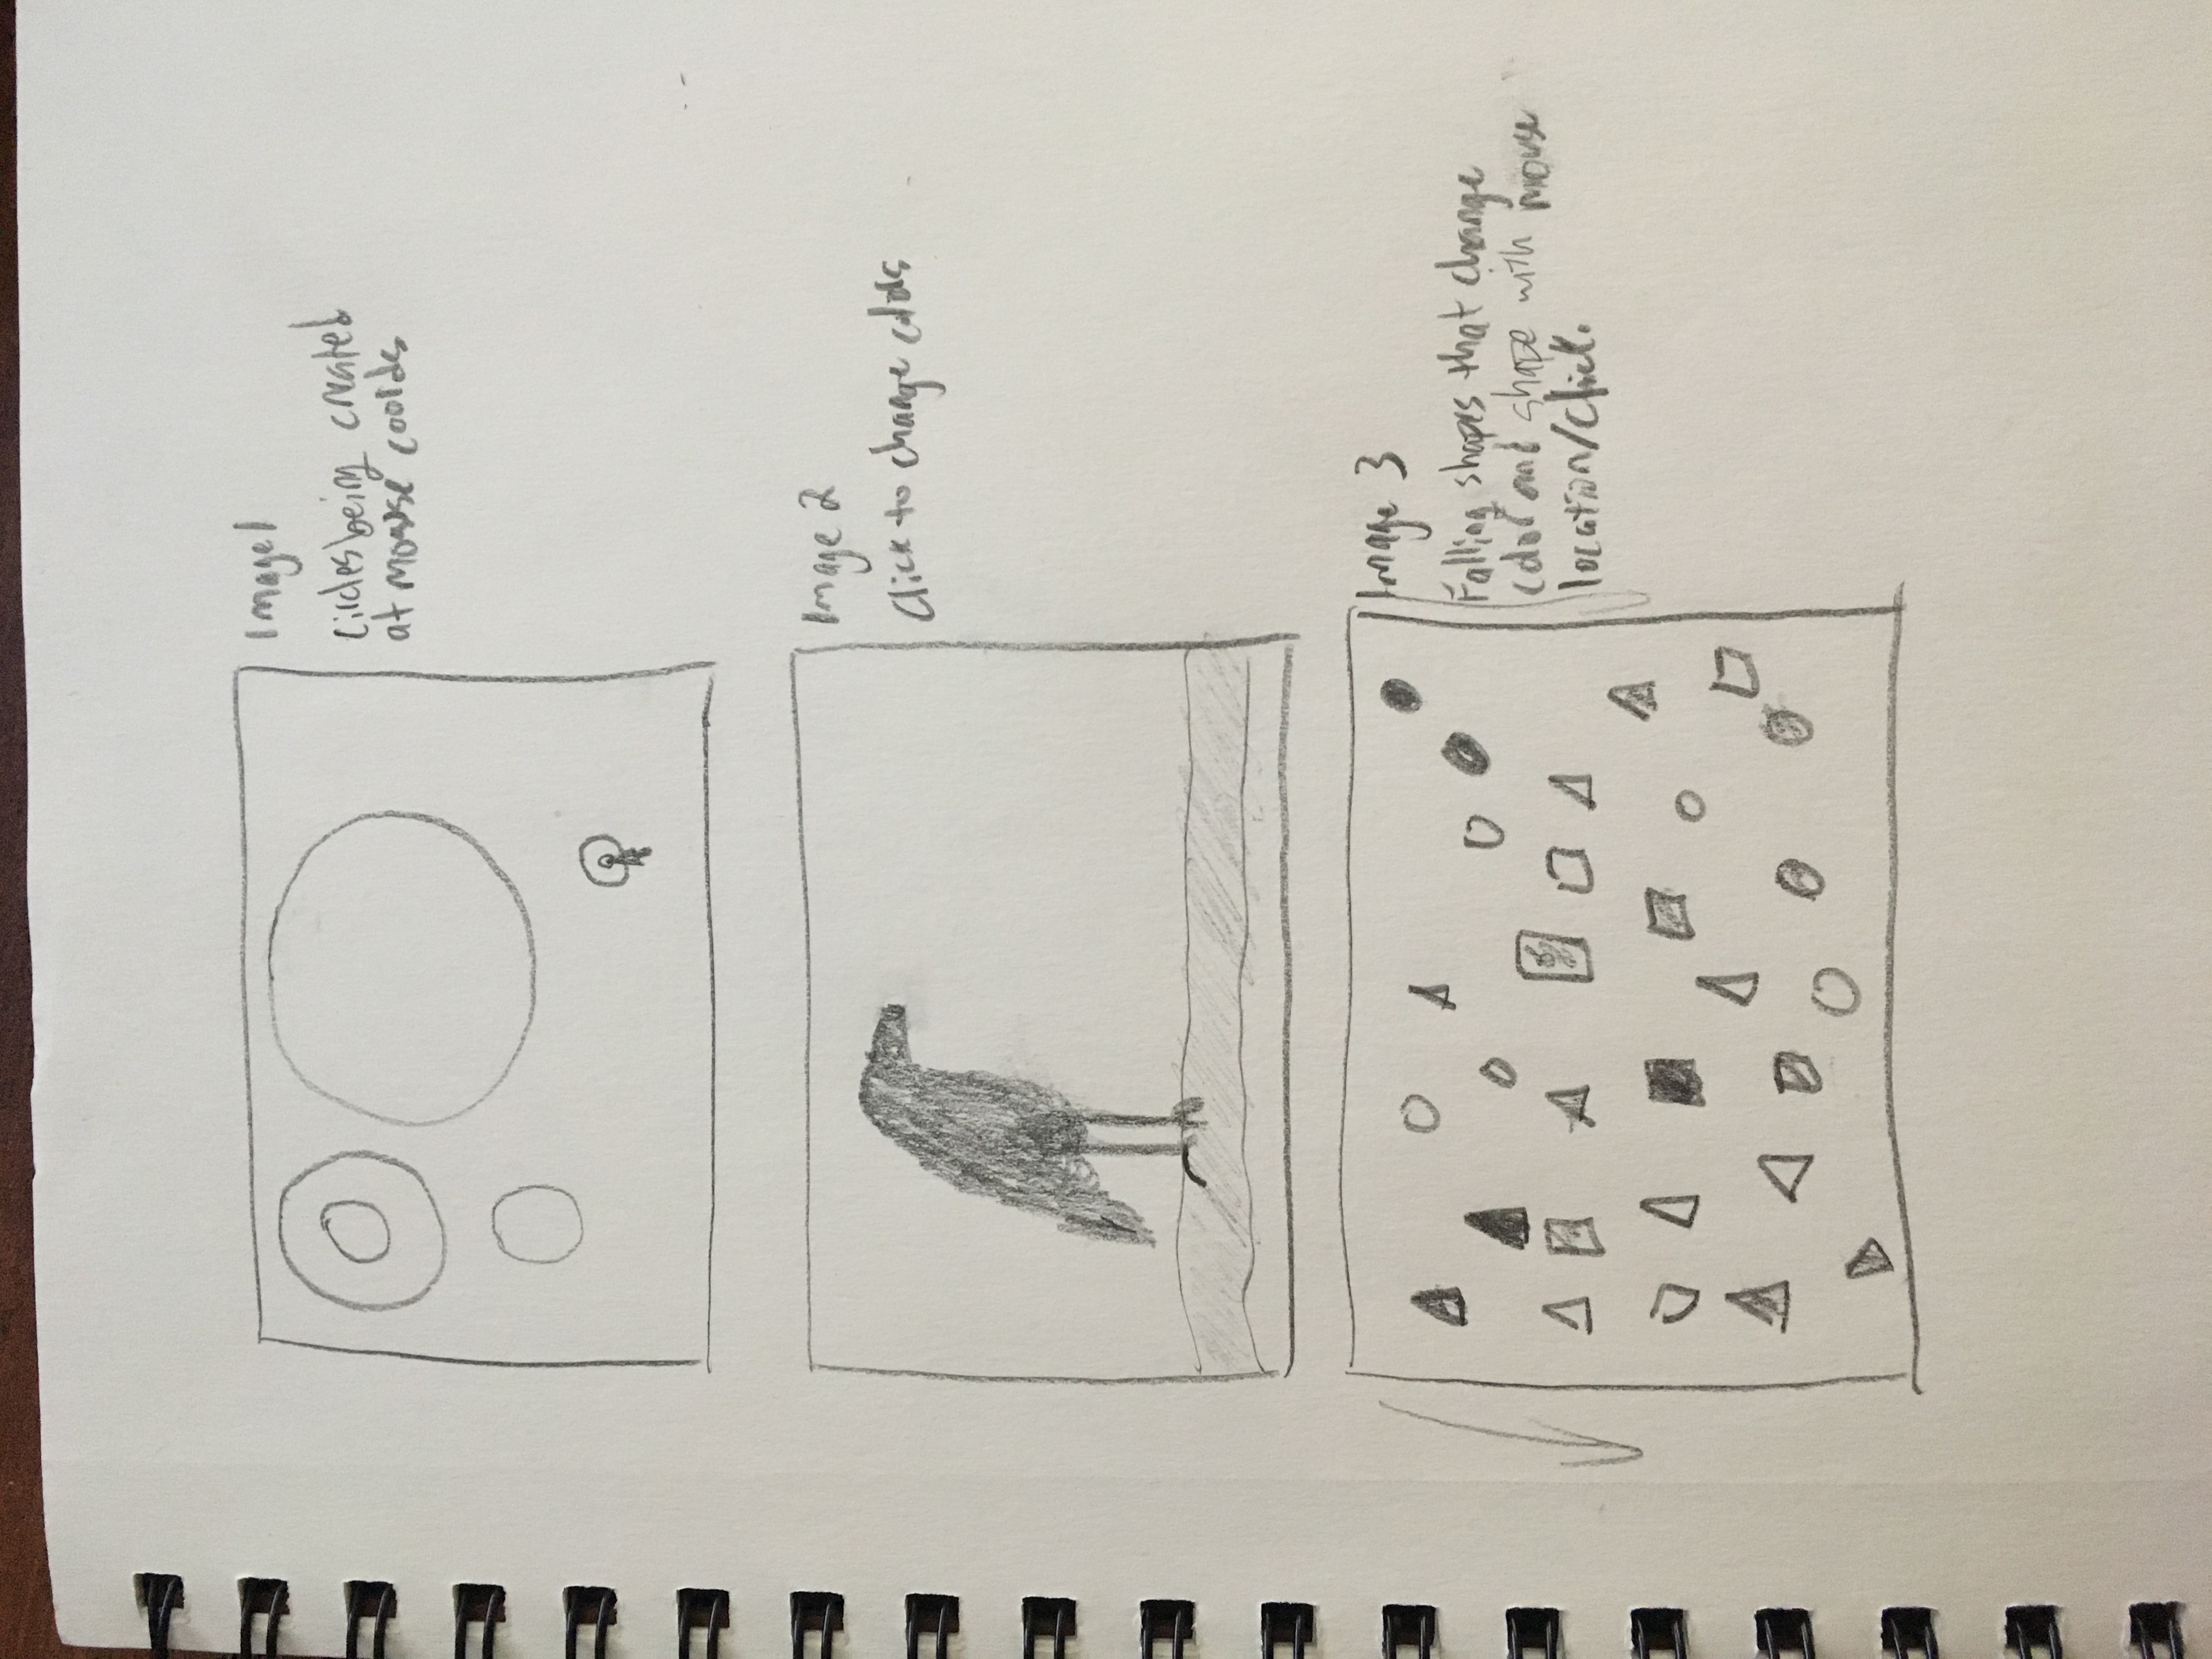 Image 1
circles being created
at mouse coords
Image 2
Click to change colors
Image 3
Falling shapes that change
color and shape with mouse
location/click.